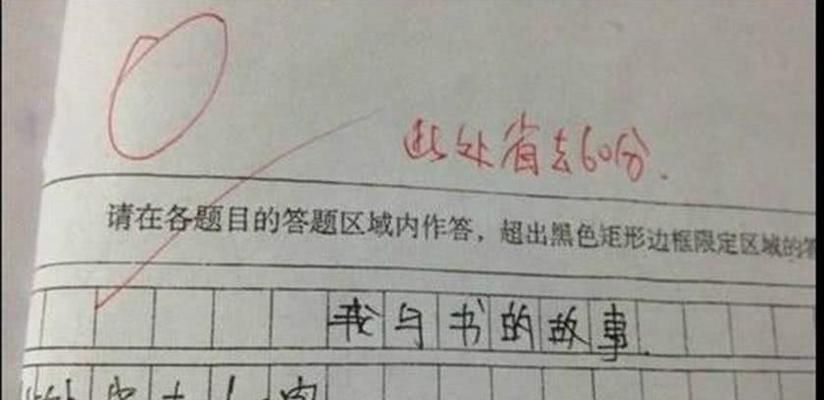 0
此处省去60分.
请在各题目的答题区域内作答，超出黑色矩形边框限定区域的答
我与书的故事.
此处省去八百字